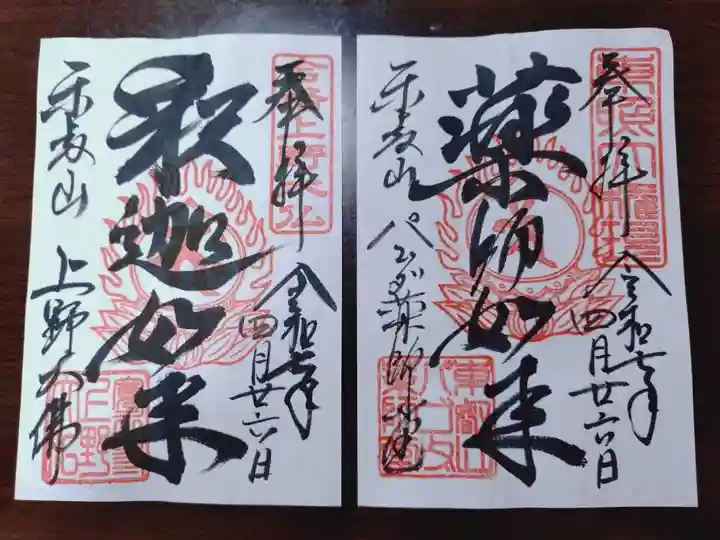 奉拝
令和七年
四月廿六日
薬師如来
東叡山
パゴダ薬師堂
奉拝
令和七年
四月廿六日
釈迦如来
東叡山
上野大佛